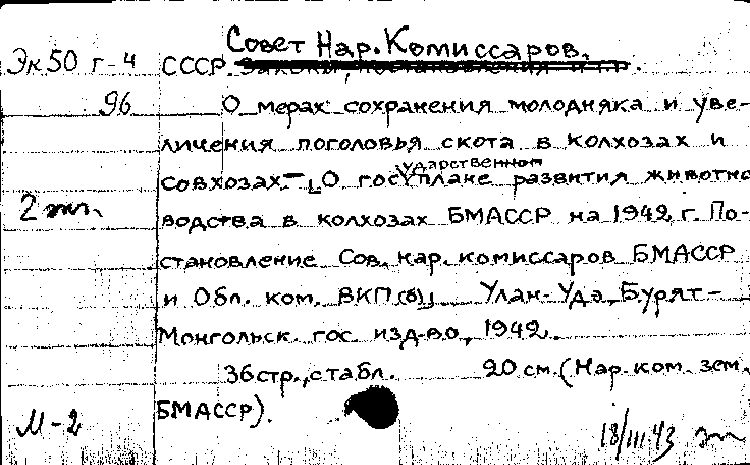 Совет Нар. Комиссаров.
Эк50 г-4 СССР. Законы, постановления и т.п.
96 О мерах сохранения молодняка и уве-
личения поголовья скота в колхозах и
ударственном
совхозах. – [О гос плане развития животно
2 экз. водства в колхозах БМАССР на 1942 г. По-
становление Сов. нар. комиссаров БМАССР
и Обл. ком. ВКП(б)] Улан-Удэ, Бурят-
Монгольск. гос. изд-во, 1942.
36 стр., с табл. 20 см. (Нар. ком. зем.
М-2 БМАССР).
18/III 43